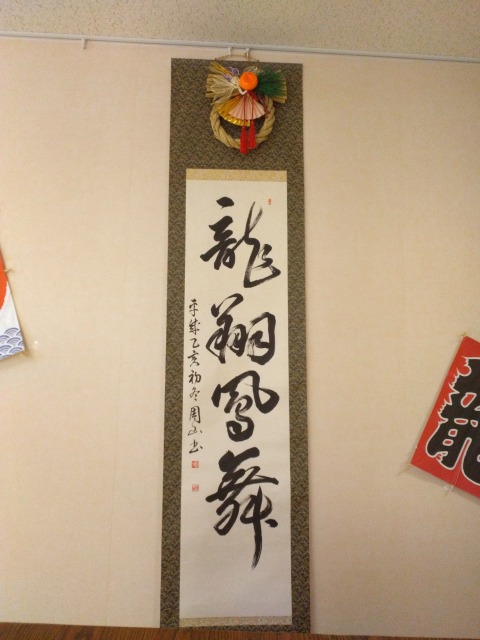 龍翔鳳舞
平成乙亥初冬周山書
龍